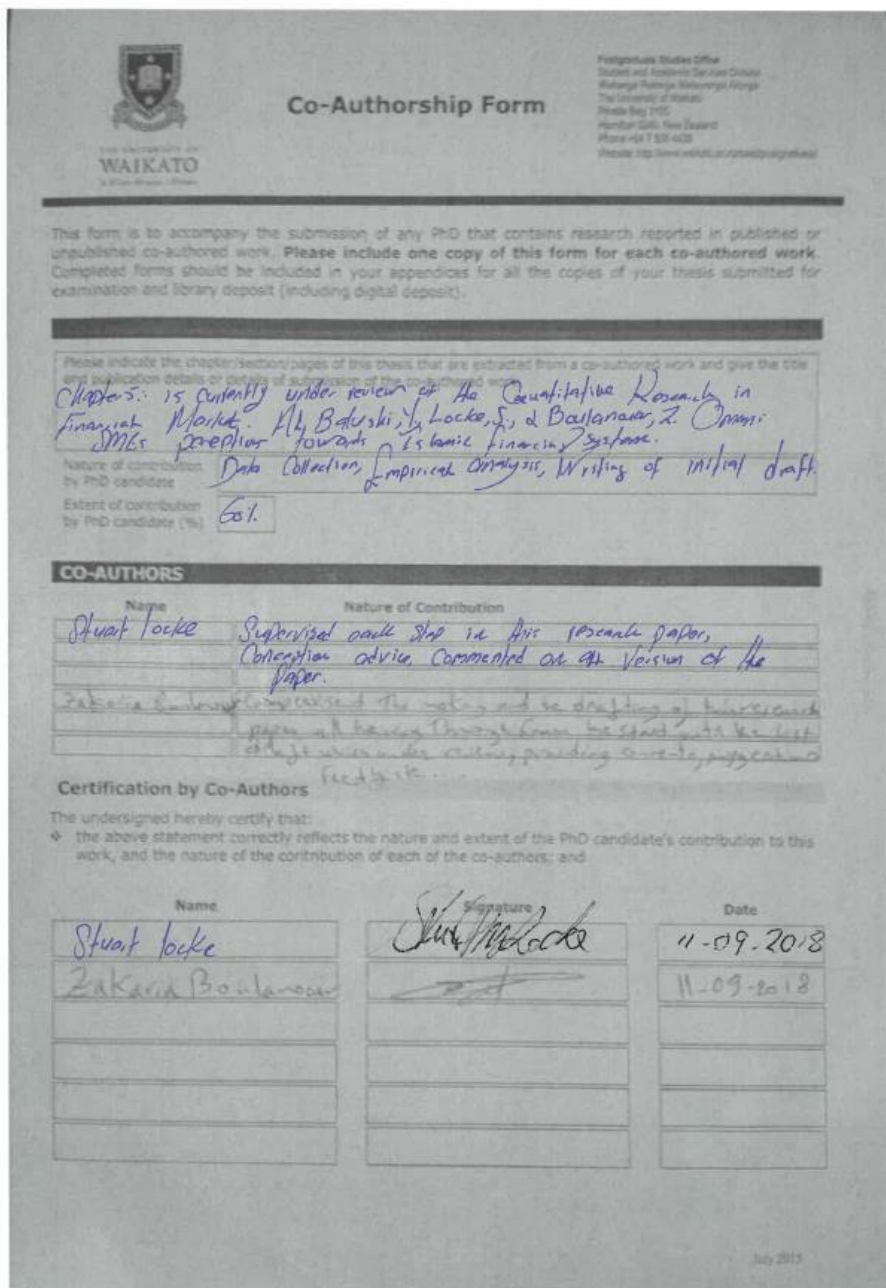 THE UNIVERSITY OF
WAIKATO
Co-Authorship Form
Postgraduate Studies Office
Student and Academic Services Division
The University of Waikato
Private Bag 3105
Hamilton 3240, New Zealand
Phone +64 7 838 4439
This form is to accompany the submission of any PhD that contains research reported in published or
unpublished co-authored work. Please include one copy of this form for each co-authored work.
Completed forms should be included in your appendices for all the copies of your thesis submitted for
examination and library deposit (including digital deposit).
Please indicate the chapter/section/pages of this thesis that are extracted from a co-authored work and give the title
and publication details or details of submission of the co-authored work.
Chapter 5: is currently under review at the Qualitative Research in
Financial Market. Al Balushi, Y, Locke, S, & Boulanouar, Z. Omani
SMEs perception towards Islamic Financing System.
Nature of contribution
by PhD candidate
Data Collection, Empirical Analysis, Writing of initial draft.
Extent of contribution
by PhD candidate (%)
60%
CO-AUTHORS
Name Nature of Contribution
Stuart Locke Supervised each step in this research paper,
Conception advice, Commented on Version of the
Paper.
Zakaria Boulanouar The and drafting of
paper
providing
Feedback.
Certification by Co-Authors
The undersigned hereby certify that:
❖ the above statement correctly reflects the nature and extent of the PhD candidate's contribution to this
work, and the nature of the contribution of each of the co-authors; and
Name Signature Date
Stuart Locke 11-09-2018
Zakaria Boulanouar 11-09-2018
July 2015